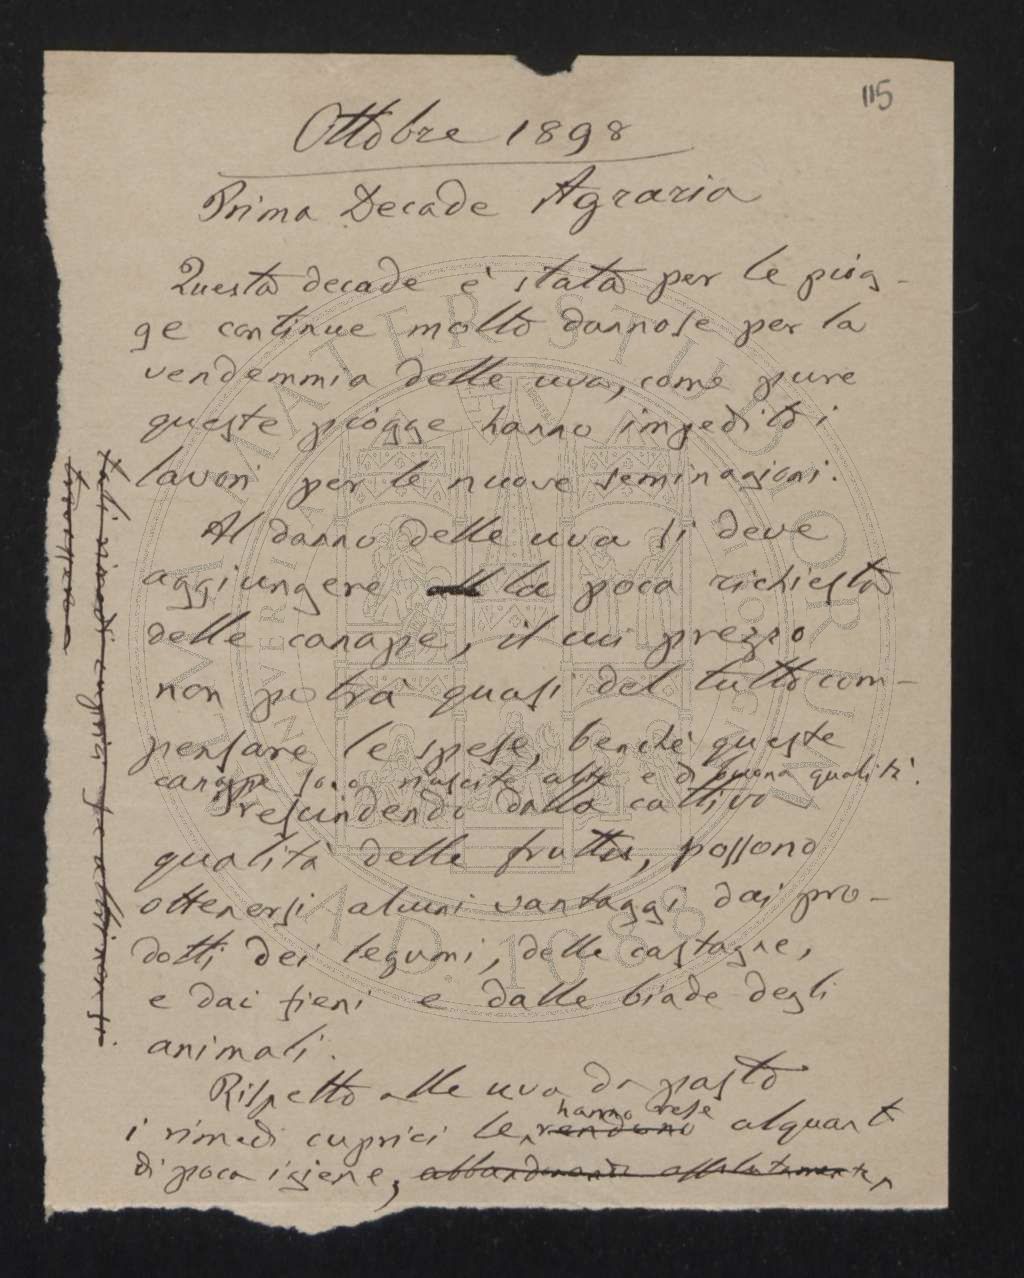 115
Ottobre 1898
Prima Decade Agraria
Questa decade è stata per le piog-
ge continue molto dannose per la
vendemmia delle uva, come pure
queste piogge hanno impedito i
lavori per le nuove seminagioni.
Al danno delle uva si deve
aggiungere la poca richiesta
delle canape, il cui prezzo
non potrà quasi del tutto com-
pensare le spese, benchè queste
canappe sono riuscite alte e di buona qualità.
Prescindendo dalla cattiva
qualità delle frutta, possono
ottenersi alcuni vantaggi dai pro-
dotti dei legumi, delle castagne,
e dai fieni e dalle biade degli
animali.
Rispetto alle uva da pasto
hanno rese
i rimedi cuprici le rendono alquant
di poca igiene, abbandonando assolutamente
tali rimedi cuprici se altri non si
ALMA MATER STUDIORUM
A.D. 1088